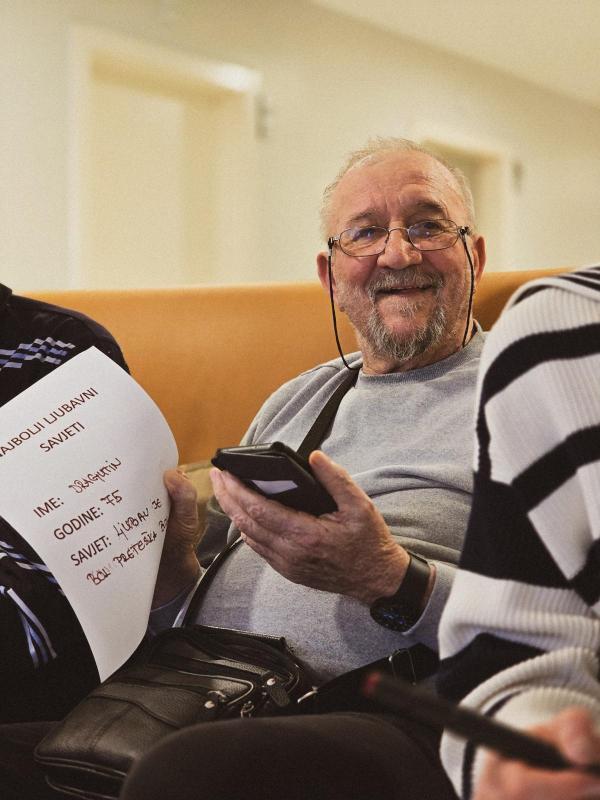 NAJBOLJI LJUBAVNI
SAVJETI
IME: DRAGUTIN
GODINE: 75
SAVJET: LJUBAV JE
PRETEŠKA